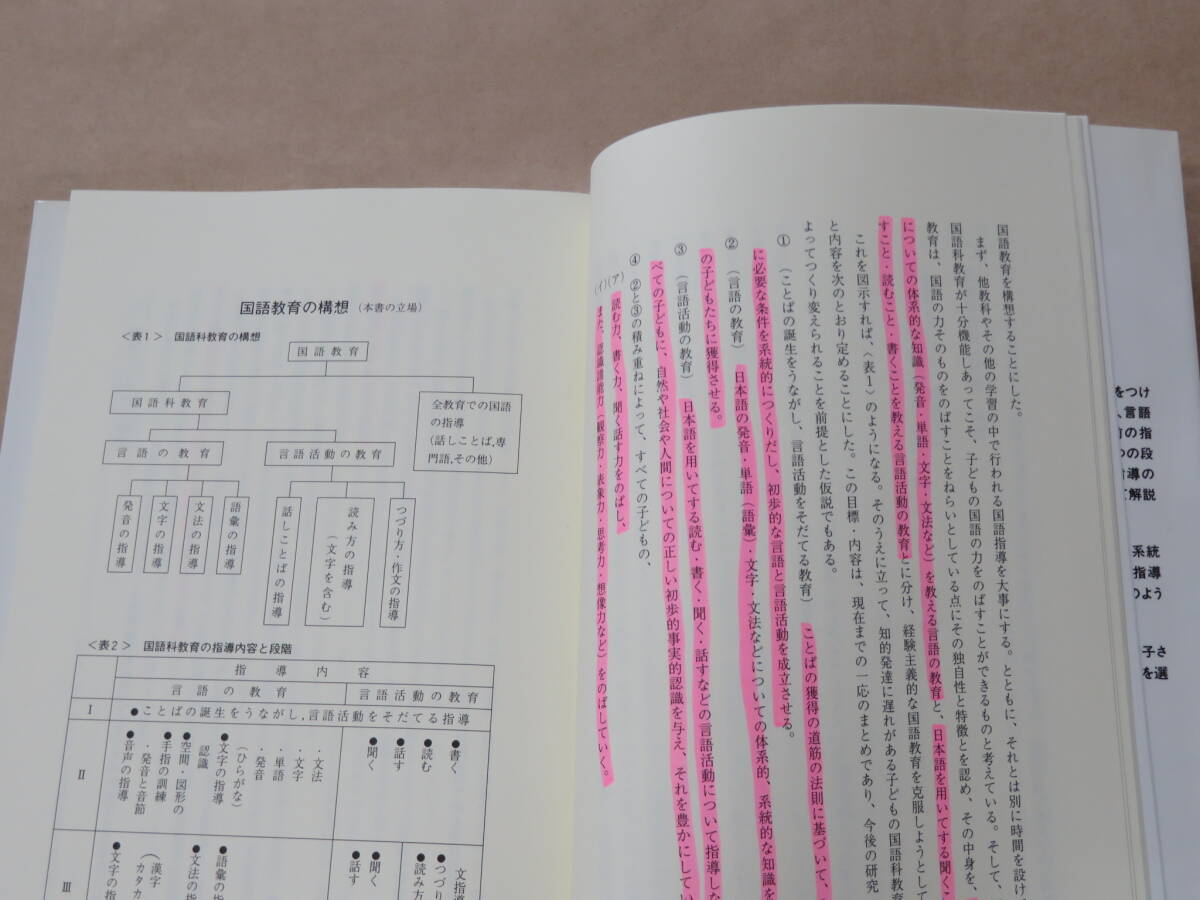 国語教育を構想することにした。
まず、他教科やその他の学習の中で行われる国語指導を大事にする。とともに、それとは別に時間を設け
国語科教育が十分機能しあってこそ、子どもの国語の力をのばすことができるものと考えている。そして、
教育は、国語の力そのものをのばすことをねらいとしている点にその独自性と特徴とを認め、その中身を、
についての体系的な知識(発音・単語・文字・文法など)を教える言語の教育と、日本語を用いてする聞くこ
すこと・読むこと・書くことを教える言語活動の教育とに分け、経験主義的な国語教育を克服しようとして
これを図示すれば、〈表1〉のようになる。そのうえに立って、知的発達に遅れがある子どもの国語科教育
と内容を次のとおり定めることにした。この目標・内容は、現在までの一応のまとめであり、今後の研究
よってつくり変えられることを前提とした仮説でもある。
① (ことばの誕生をうながし、言語活動をそだてる教育) ことばの獲得の道筋の法則に基づいて、
に必要な条件を系統的につくりだし、初歩的な言語と言語活動を成立させる。
② (言語の教育) 日本語の発音・単語(語彙)・文字・文法などについての体系的、系統的な知識を
の子どもたちに獲得させる。
③ (言語活動の教育) 日本語を用いてする読む・書く・聞く・話すなどの言語活動について指導しな
べての子どもに、自然や社会や人間についての正しい初歩的事実的認識を与え、それを豊かにしてい
④ ②と③の積み重ねによって、すべての子どもの、
(ア) 読む力、書く力、聞く話す力をのばし、
(イ) また、認識諸能力(観察力・表象力・思考力・想像力など)をのばしていく。
国語教育の構想(本書の立場)
<表1> 国語科教育の構想
国語教育
国語科教育
全教育での国語
の指導
(話しことば,専
門語,その他)
言語の教育
言語活動の教育
発音の指導
文字の指導
文法の指導
語彙の指導
話しことばの指導
読み方の指導
(文字を含む)
つづり方・作文の指導
<表2> 国語科教育の指導内容と段階
指導内容
言語の教育
言語活動の教育
Ⅰ
●ことばの誕生をうながし,言語活動をそだてる指導
Ⅱ
●音声の指導
・発音と音節
●手指の訓練
●空間・図形の
認識
●文字の指導
(ひらがな)
・発音
・単語
・文字
・文法
●聞く
●話す
●読む
●書く
Ⅲ
●文字の指
(漢字
カタカ
●文法の
●語彙の指
●話す
●聞く
●読み方
●つづり
文指
をつけ
言語
の指
の段
指導の
て解説
系統
指導
のよう
子さ
を選